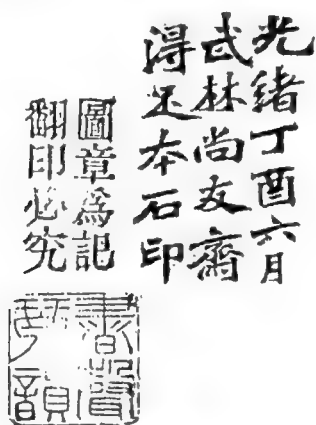 光緒丁酉六月
武林尚友齋
淂足本石印
圖章爲記
翻印必究